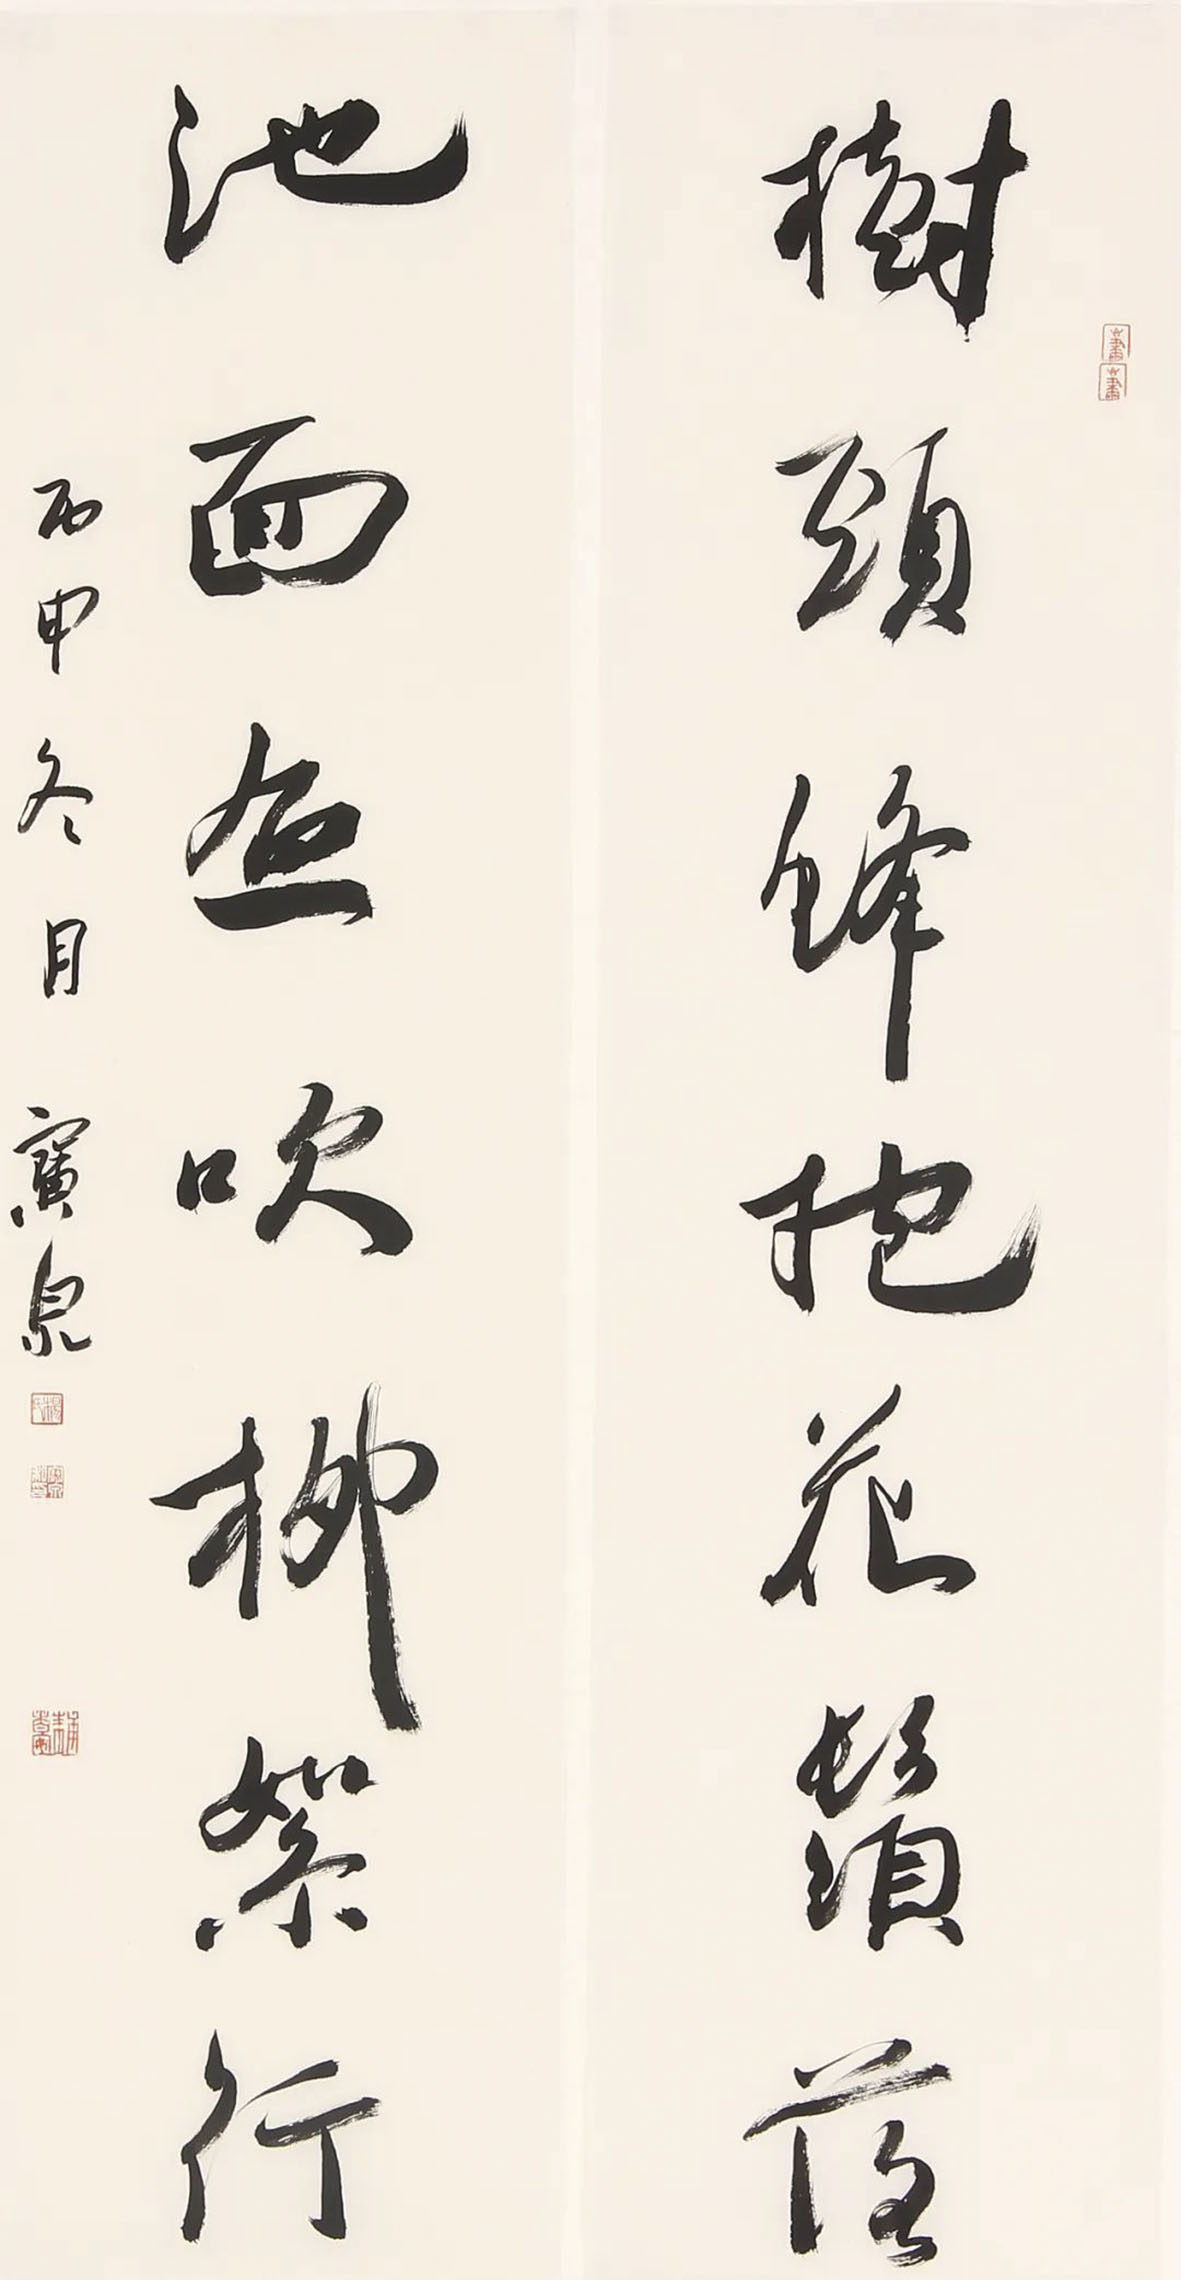 樹頭蜂抱花鬚落
池面魚吹柳絮行
丙申冬月 泉